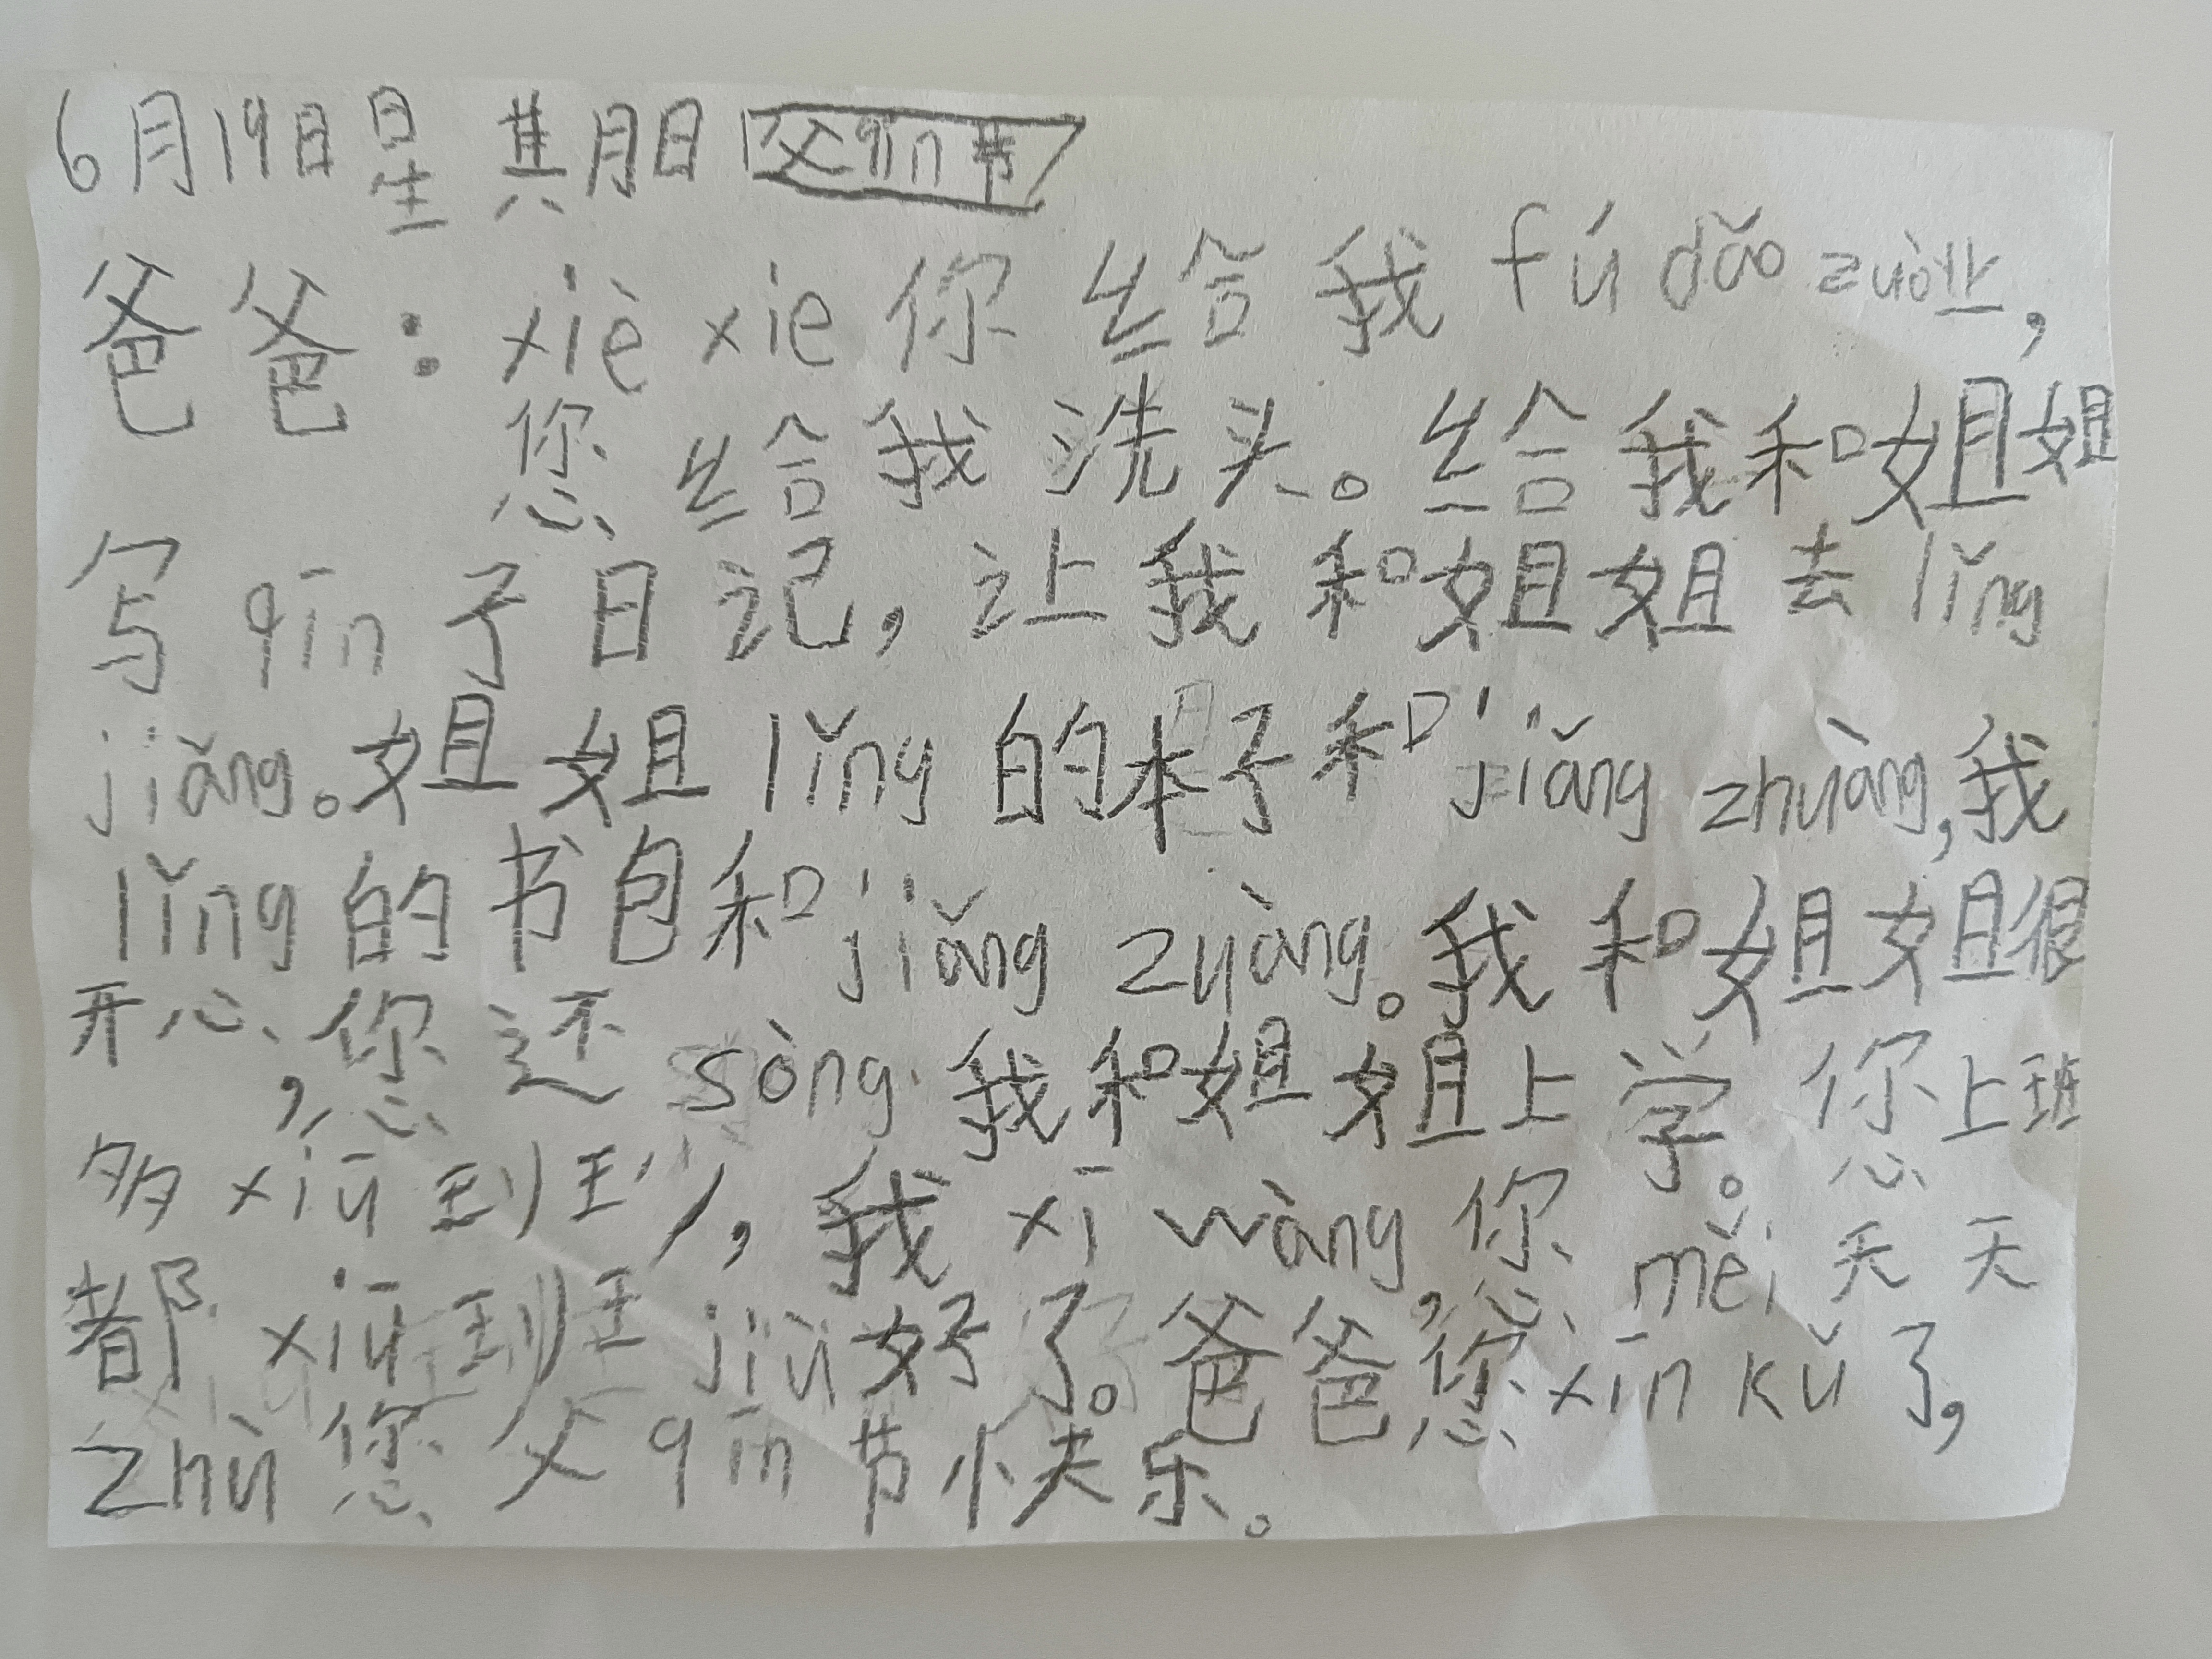 6月19日星期日 父qīn节
爸爸：xiè xie 你给我 fú dǎo zuò业，
您给我洗头。给我和姐姐
写qīn子日记，让我和姐姐去lǐng
jiǎng。姐姐lǐng的本子和jiǎng zhuàng，我
lǐng的书包和jiǎng zuàng。我和姐姐很
开心，您还sòng我和姐姐上学。您上班
多xiū到玨少，我xī wàng，您měi天天
都xiū到玨jiù好了。爸爸，您xīn kǔ了，
zhù您父qīn节快乐。